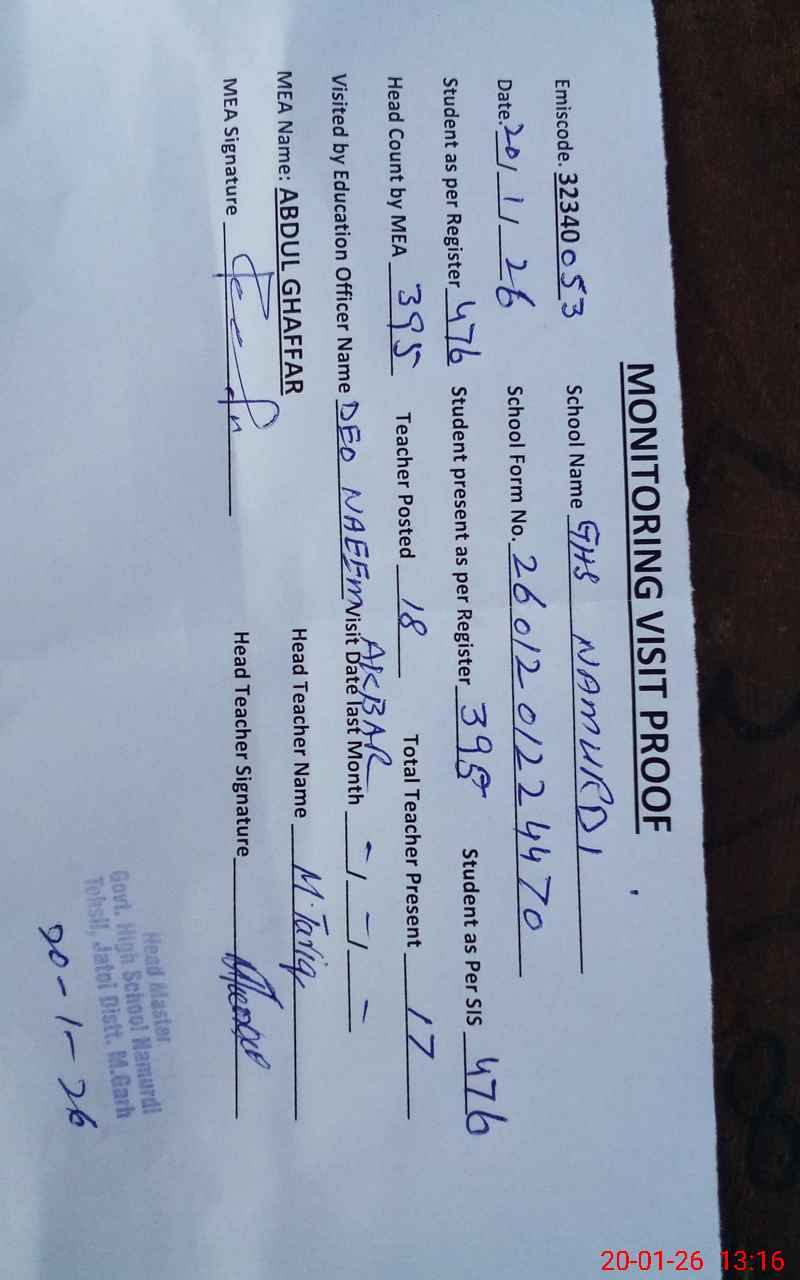 MONITORING VISIT PROOF
Emiscode. 32340053 School Name GHS NAMURDI
Date. 20/1/26 School Form No. 2601201224470
Student as per Register 476 Student present as per Register 395 Student as Per SIS 476
Head Count by MEA 395 Teacher Posted 18 Total Teacher Present 17
Visited by Education Officer Name DEO NAEEM AKBAR Visit Date last Month -/-/-
MEA Name: ABDUL GHAFFAR Head Teacher Name M. Tariq
MEA Signature Head Teacher Signature
Head Master
Govt. High School Namurdi
Tehsil, Jatoi Distt. M.Garh
20-1-26
20-01-26 13:16